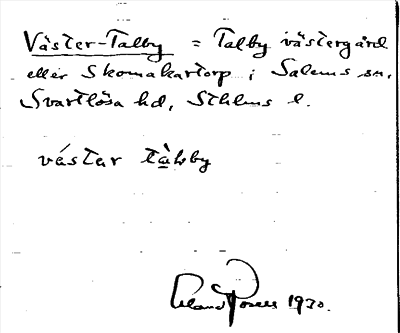 Väster-Talby = Talby västergård
eller Skomakartorp i Salems sn,
Svartlösa hd, Sthlms l.
västar tàlsby
1930.